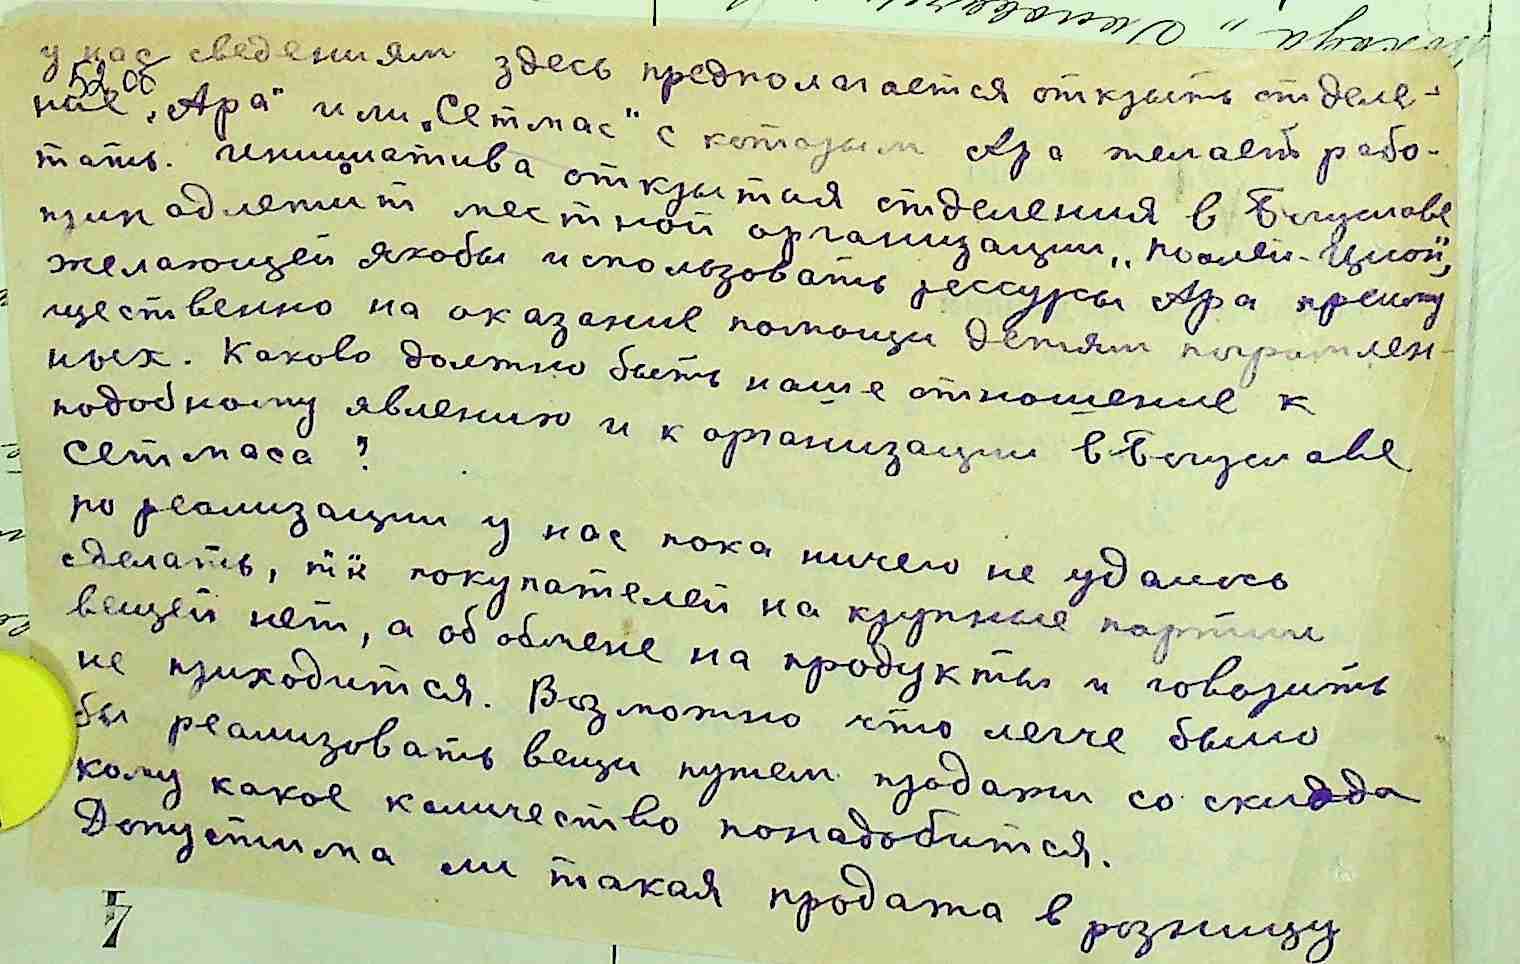 у нас сведениям здесь предполагается открыть отделе-
52 об
ние „Ара" или „Сетмас" с которым Ара желает рабо-
тать. Инициатива открытия отделения в Богуславе
принадлежит местной организации „Поалей-Цион",
желающей якобы использовать рессурсы Ара преиму
щественно на оказание помощи детям погромлен-
ных. Каково должно быть наше отношение к
подобному явлению и к организации в Богуславе
Сетмаса?
по реализации у нас пока ничего не удалось
сделать, т'к покупателей на крупные партии
вещей нет, а об обмене на продукты и говорить
не приходится. Возможно что легче было
бы реализовать вещи путем продажи со склада
кому какое количество понадобится.
Допустима ли такая продажа в розницу